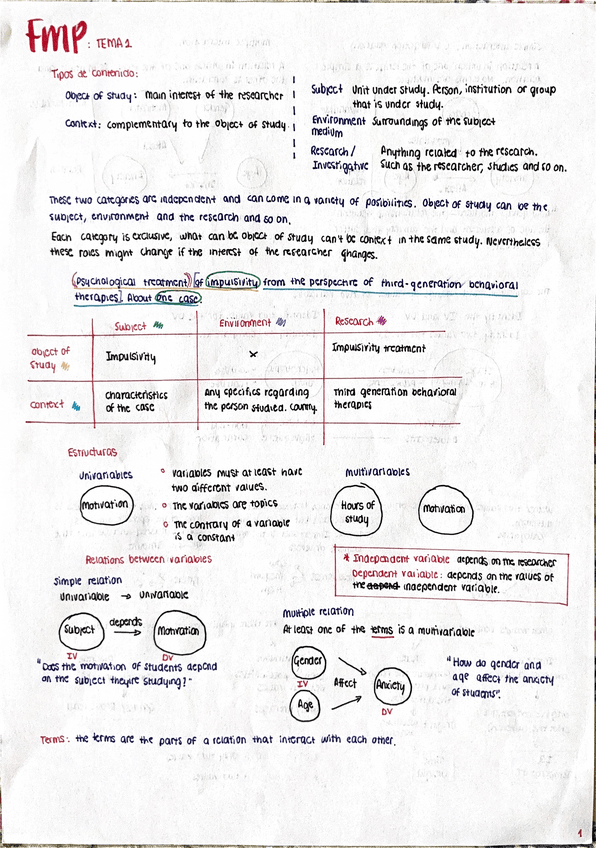 FMP: TEMA 1
Tipos de contenido:
Object of study: main interest of the researcher
Context: complementary to the object of study.
Subject Unit under study. Person, institution or group
that is under study.
Environment Surroundings of the subject
medium
Research/ Anything related to the research.
Investigative Such as the researcher, studies and so on.
These two categories are independent and can come in a variety of posibilities. Object of study can be the
subject, environment and the research and so on.
Each category is exclusive, what can be object of study can't be context in the same study. Nevertheless
these roles might change if the interest of the researcher changes.
(Psychological treatment) [of impulsivity from the perspective of third-generation behavioral
therapies]. About one case.
Subject Environment Research
Object of Impulsivity x Impulsivity treatment
study
Context characteristics Any specifics regarding Third generation behavioral
of the case the person studied. Country. therapies
Estructuras
Univariables
Motivation
Variables must at least have
two different values.
The variables are topics
The contrary of a variable
is a constant
multivariables
Hours of
study
Motivation
Relations between variables
* Independent variable depends on the researcher
Dependent variable: depends on the values of
the depend independent variable.
Simple relation
Univariable → univariable
Subject depends Motivation
IV DV
"Does the motivation of students depend
on the subject they're studying?"
Multiple relation
At least one of the terms is a multivariable
Gender
IV
Age
Affect
Anxiety
DV
"How do gender and
age affect the anxiety
of students".
Terms: the terms are the parts of a relation that interact with each other.
1